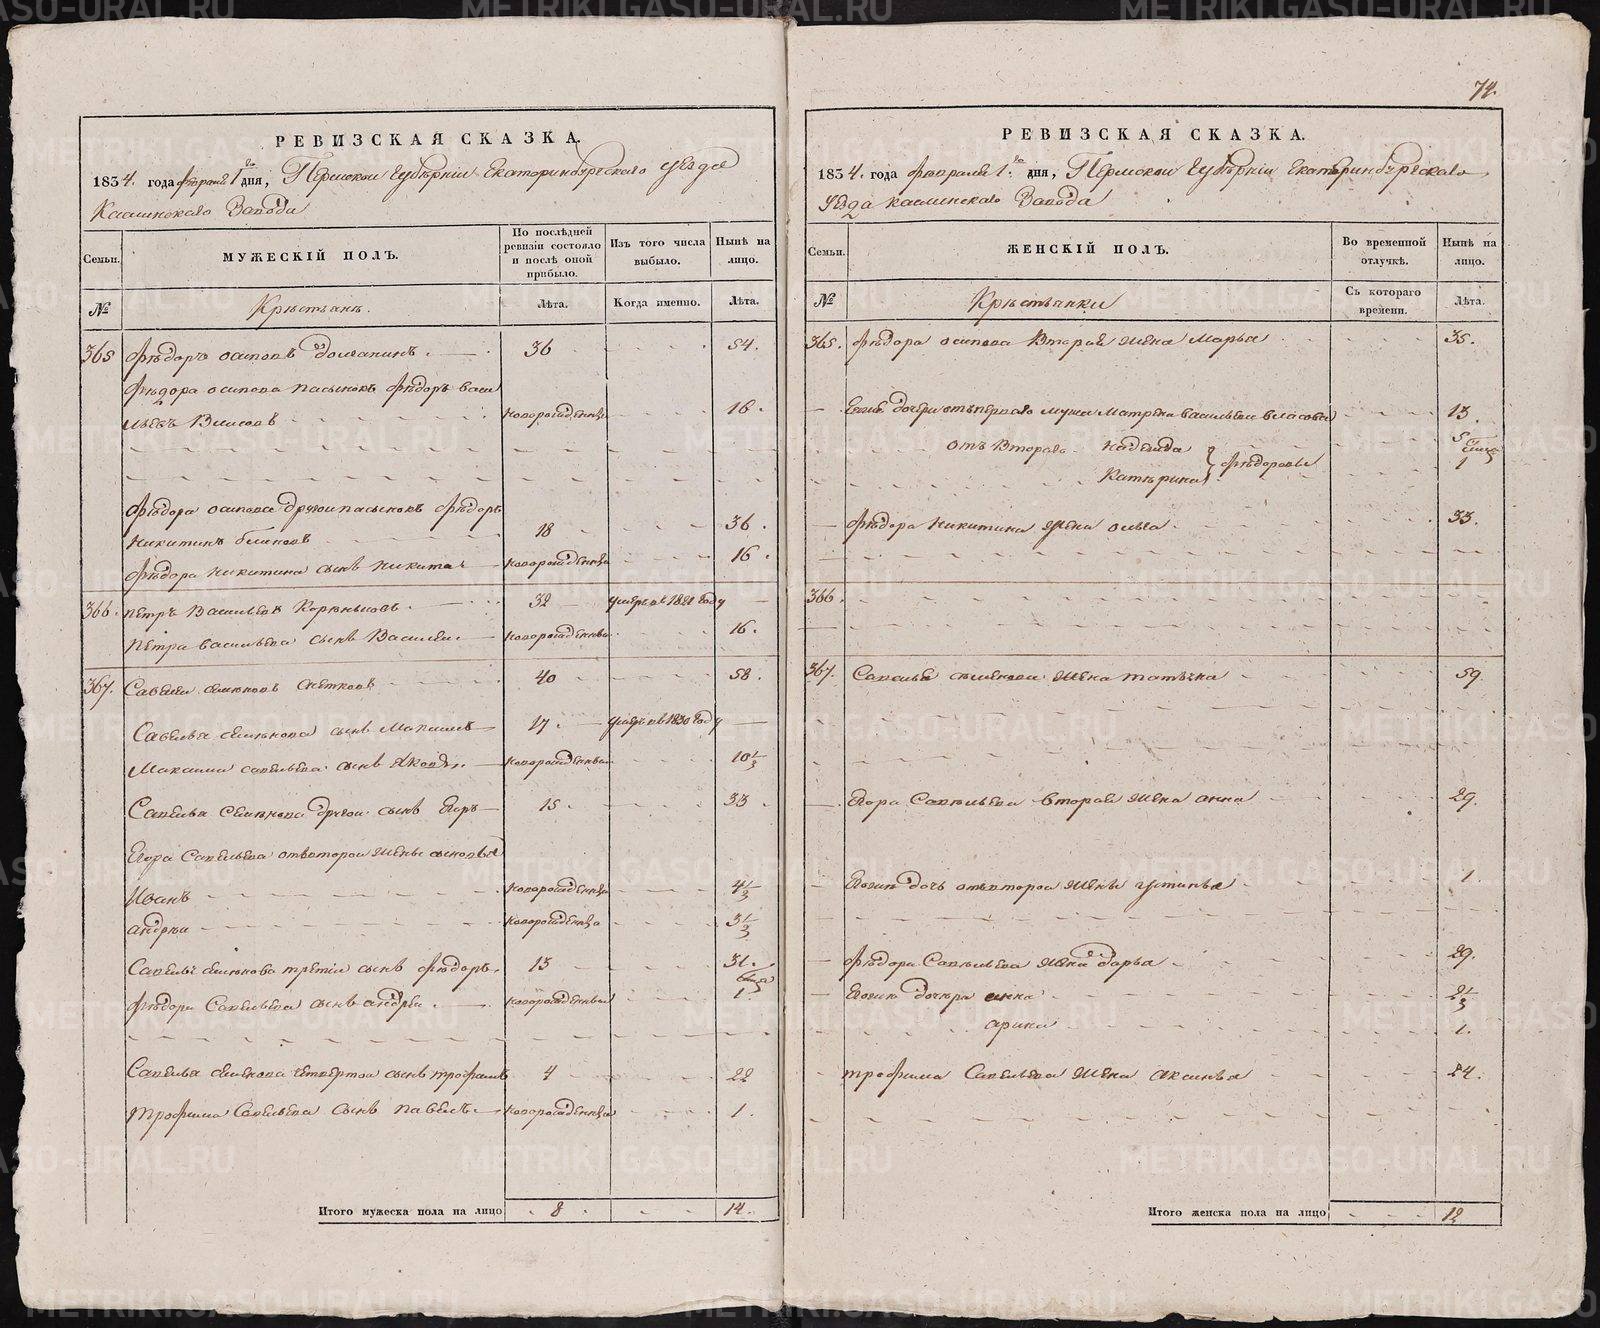 РЕВИЗСКАЯ СКАЗКА.
1834. года февраля 1го дня, Пермской Губернiи Екатеринбургскаго уезда
Каслинскаго Завода
Семьи.
МУЖЕСКIЙ ПОЛЪ.
По послѣдней ревизiи состояло и послѣ оной прибыло.
Изъ того числа выбыло.
Нынѣ на лицо.
№
Крестьянъ.
Лѣта.
Когда именно.
Лѣта.
365 Федоръ осиповъ 36 54.
Федора осипова пасынокъ Федоръ васи
льевъ новорожденный 16.
Федора осипова другои пасынокъ Федоръ
никитинъ 18 36.
Федора никитина сынъ никита новорожденный 16.
366. петръ Васильевъ 32 умеръ в 1821 году
петра васильева сынъ Василеи новорожденный 16.
367. Савелеи семеновъ 40 58.
Савелья семенова сынъ Максимъ 17. умеръ в 1830 году
Максима савельева сынъ яковъ новорожденный 10 1/2
Савелья Семенова другои сынъ Егоръ 15. 33.
Егора Савельева отвторои жены сыновья
Иванъ новорожденный 4 1/2
андреи новорожденный 3 1/2
Савелья семенова третiи сынъ Федоръ 13 31.
Федора Савельева сынъ андреи новорожденный 1
Савелья семенова четвертои сынъ трофимъ 4 22
трофима Савельева сынъ павелъ новорожденный 1.
Итого мужеска пола на лицо 8 14.
74.
РЕВИЗСКАЯ СКАЗКА.
1834. года февраля 1го дня, Пермской Губернiи Екатеринбургскаго
уезда каслинскаго Завода
Семьи.
ЖЕНСКIЙ ПОЛЪ.
Во временной отлучкѣ.
Нынѣ на лицо.
№
Крестьянки
Съ котораго времени.
Лѣта.
365. Федора осипова Вторая жена марья 35.
Ево дочери отъ перваго мужа матрена васильева власова 13.
отъ Втораго надежда 5
Катерина Федоровы 1
Федора никитина жена ольга 33.
366
367. Савелья семенова жена татьяна 59
Егора Савельева вторая жена анна 29.
Егоже дочь отвторои жены устинья 1.
Федора Савельева жена дарья 29.
Егоже дочери анна 2 1/2
арина 1.
трофима Савельева жена аксинья 24.
Итого женска пола на лицо 12
METRIKI.GASO-URAL.RU